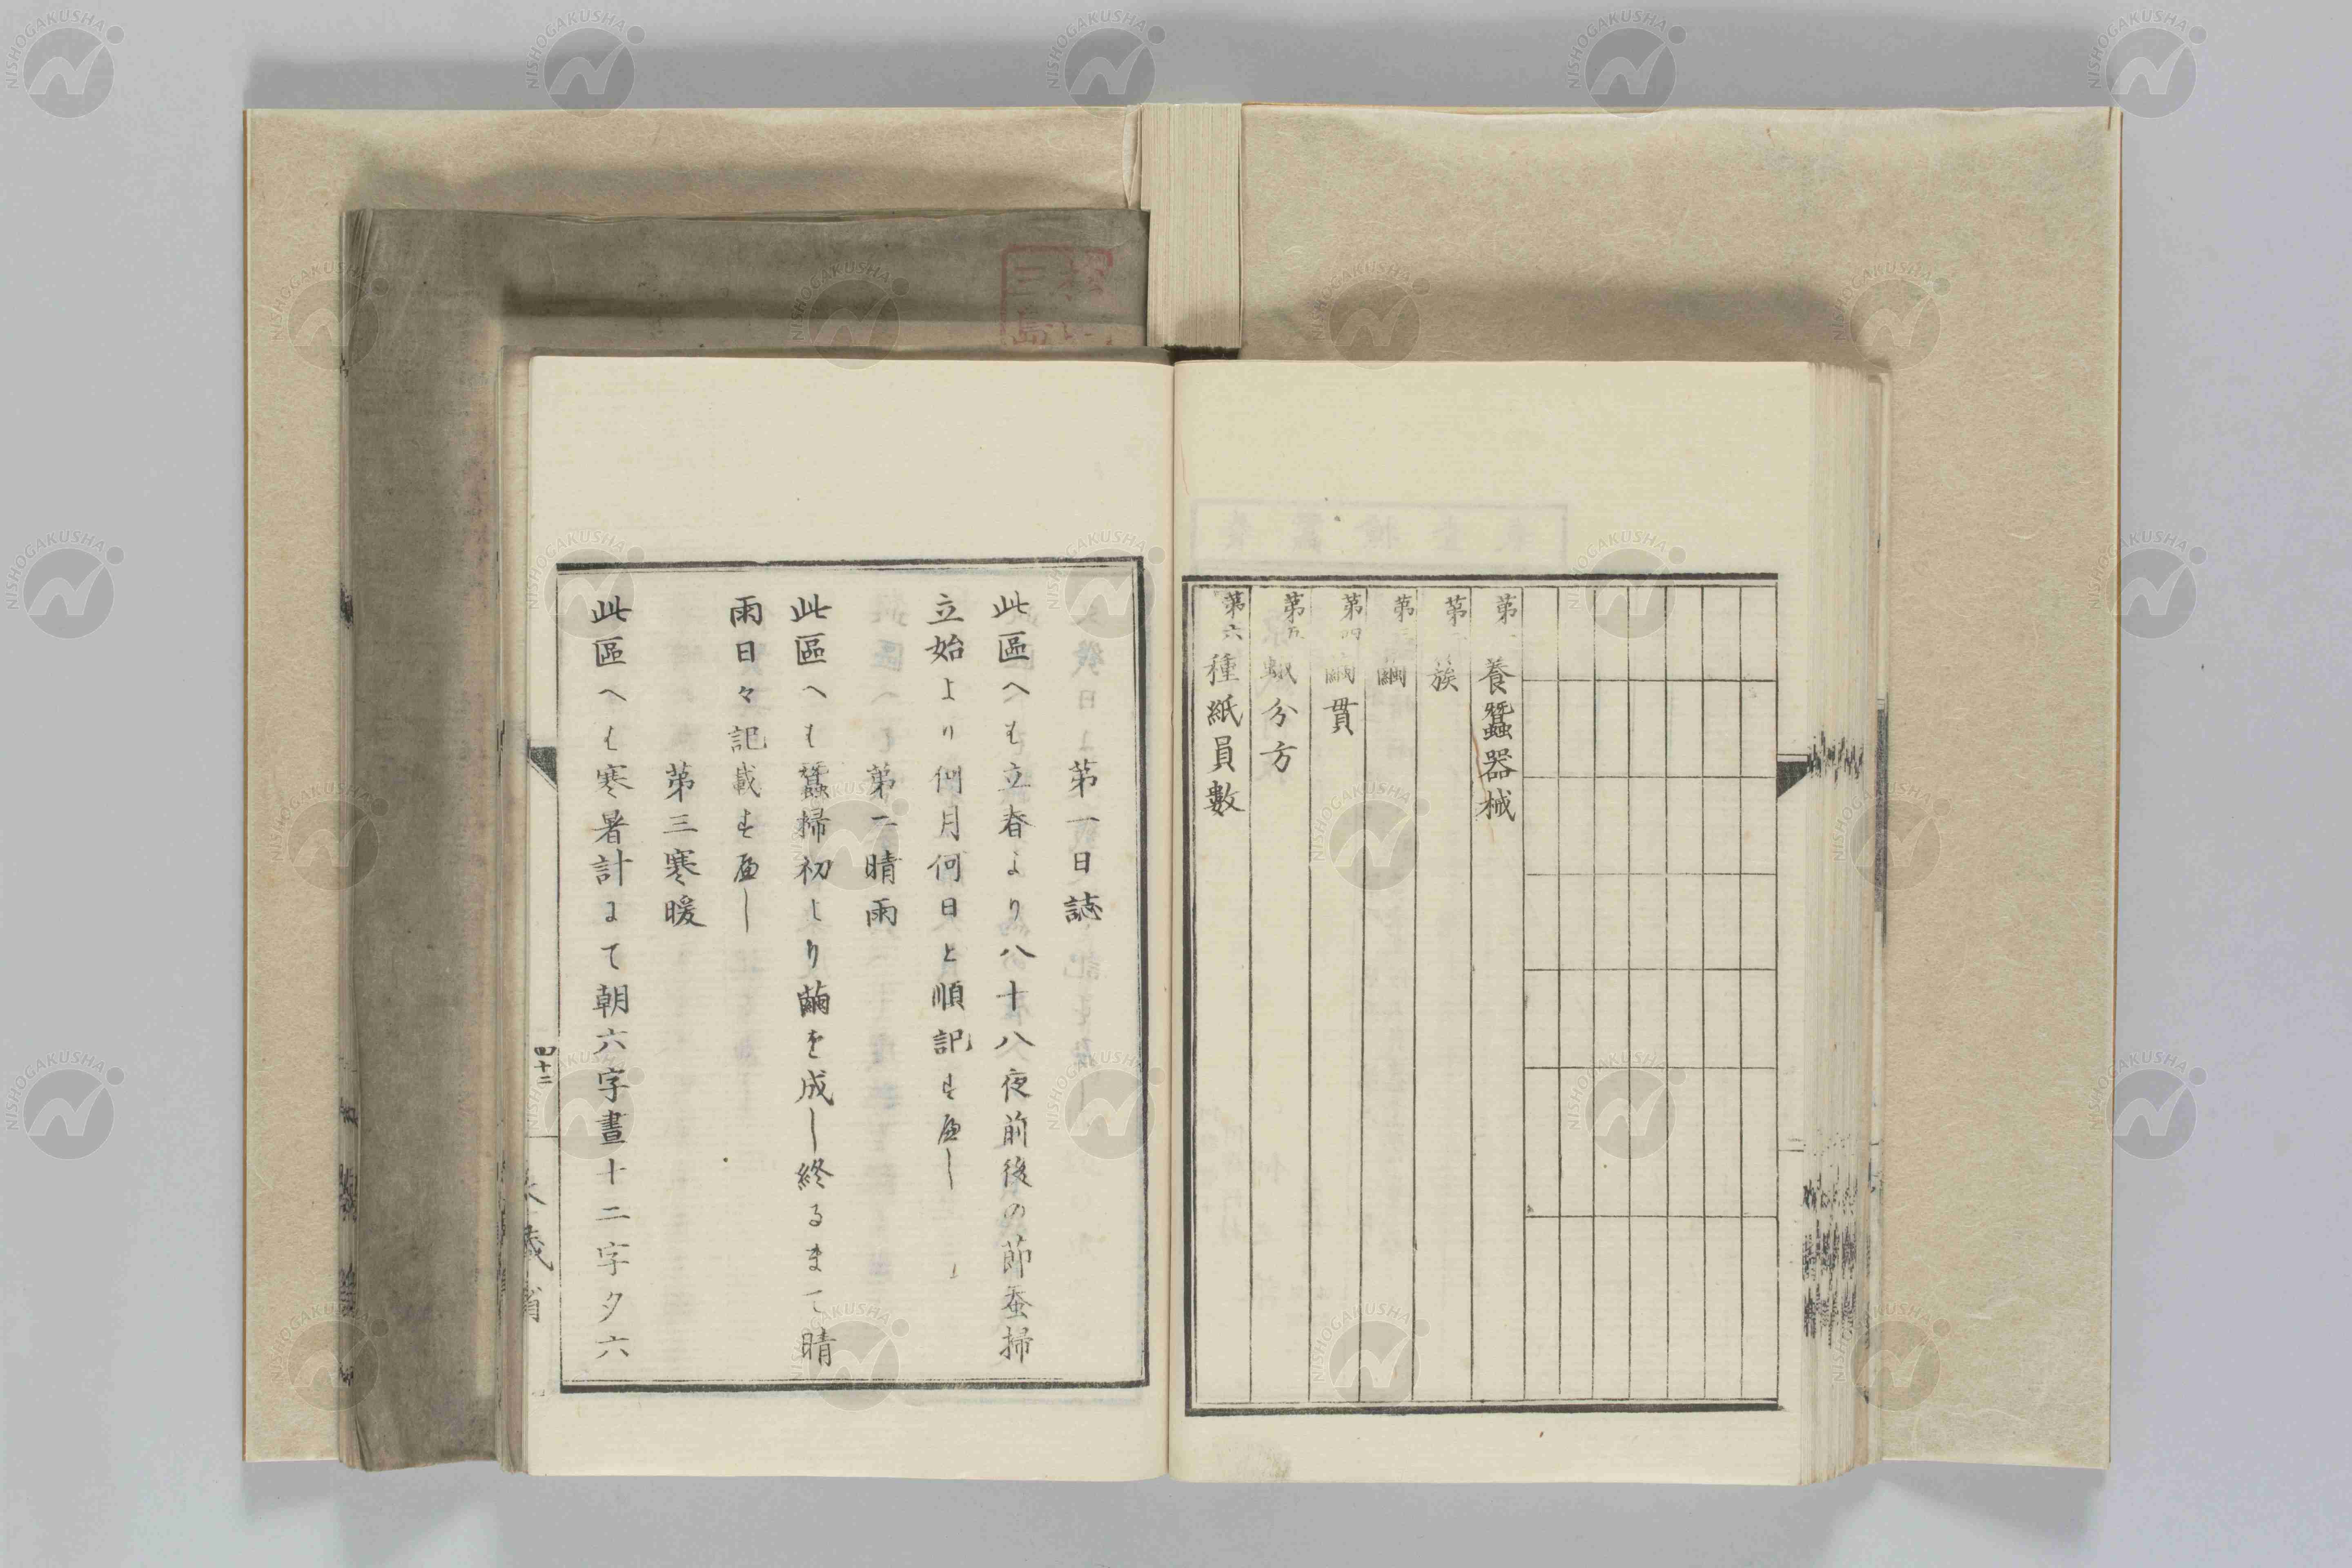 第一 養蠶器械
第二 簇
第三 繭
第四 繭貫
第五 蛾分方
第六 種紙員數
第一日誌
此區へも立春より八十八夜前後の節蚕掃
立始より何月何日と順記す𛂦し
第二晴雨
此區へも蠶掃初しより繭を成し終るまて晴
雨日々記載す𛂦し
第三寒暖
此區へも寒暑計にて朝六字晝十二字夕六
四十二
NISHOGAKUSHA